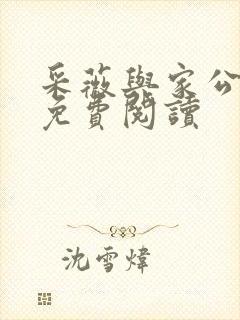 采薇與家公
免費閱讀
沈雪煒